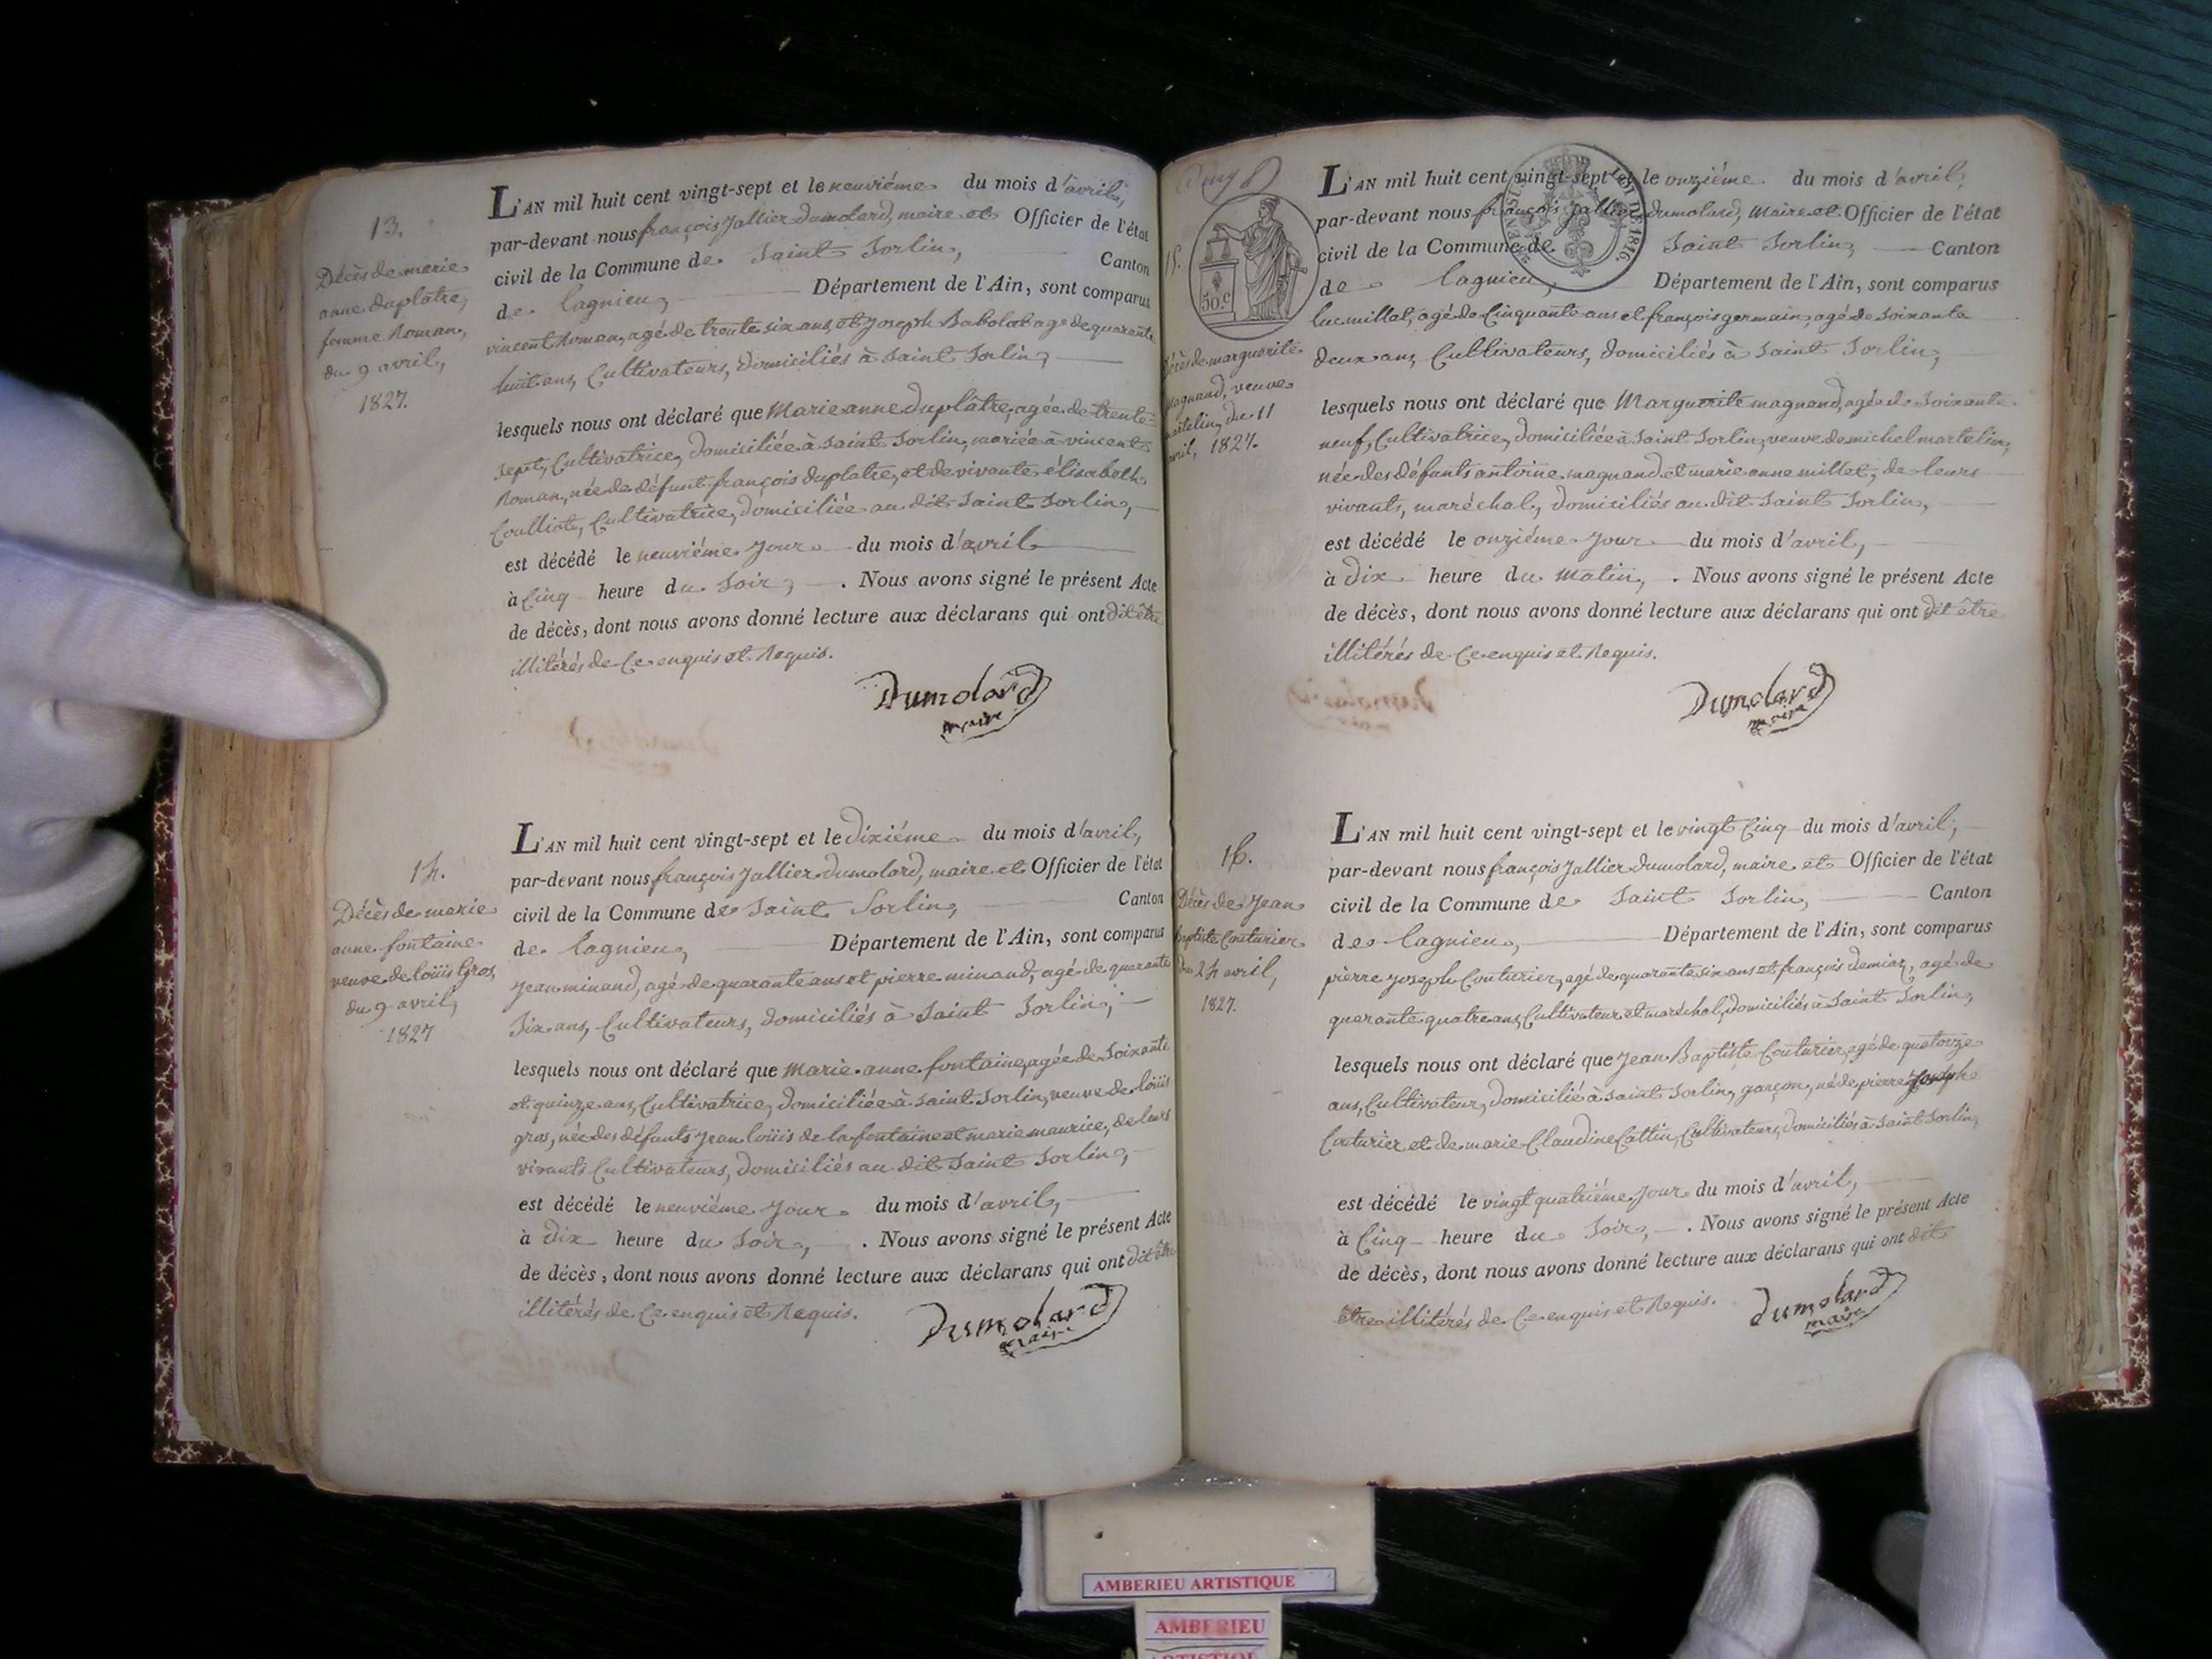 13.
Décès de marie
anne duplâtre,
femme Roman,
du 9 avril,
1827.
L'AN mil huit cent vingt-sept et le neuviéme du mois d'avril,
par-devant nous françois Jallier Dumolard, maire et Officier de l'état
civil de la Commune de Saint Sorlin, Canton
de Lagnieu, Département de l'Ain, sont comparus
vincent Roman, agé de trente six ans, et Joseph Babolat agé de quarante
huit ans, Cultivateurs, domiciliés à Saint Sorlin,
lesquels nous ont déclaré que Marie anne duplâtre, agée de trente-
sept, Cultivatrice, domiciliée à Saint Sorlin, mariée à vincent
Roman, née de défunt françois duplatre, et de vivante élisabeth
Coulliot, Cultivatrice, domiciliée au dit Saint Sorlin,
est décédé le neuviéme Jour du mois d'avril
à Cinq heure du Soir, . Nous avons signé le présent Acte
de décès, dont nous avons donné lecture aux déclarans qui ont dit être
illitérés de Ce enquis et Requis.
Dumolard
maire
14.
Décès de marie
anne fontaine
veuve de loüis Gros,
du 9 avril,
1827
L'AN mil huit cent vingt-sept et le dixiéme du mois d'avril,
par-devant nous françois Jallier Dumolard, maire et Officier de l'état
civil de la Commune de Saint Sorlin, Canton
de Lagnieu, Département de l'Ain, sont comparus
Jean minand, agé de quarante ans et pierre minand, agé de quarante
Six ans, Cultivateurs, domiciliés à Saint Sorlin,
lesquels nous ont déclaré que Marie anne fontaine, agée de Soixante
et quinze ans, Cultivatrice, domiciliée à Saint Sorlin, veuve de loüis
gros, née des défunts Jean loüis de la fontaine et marie maurice, de leurs
vivants Cultivateurs, domiciliés au dit Saint Sorlin,
est décédé le neuviéme Jour du mois d'avril,
à Dix heure du Soir, . Nous avons signé le présent Acte
de décès, dont nous avons donné lecture aux déclarans qui ont dit être
illitérés de Ce enquis et Requis.
Dumolard
maire
15.
50.c
1816.
Décès de marguerite
magnand, veuve
martelin, du 11
avril, 1827.
L'AN mil huit cent vingt-sept et le onziéme du mois d'avril,
par-devant nous françois Jallier Dumolard, Maire et Officier de l'état
civil de la Commune de Saint Sorlin, Canton
de Lagnieu, Département de l'Ain, sont comparus
luc millet, agé de Cinquante ans et françois germain, agé de Soixante
deux ans, Cultivateurs, domiciliés à Saint Sorlin,
lesquels nous ont déclaré que Marguerite magnand, agée de Soixante
neuf, Cultivatrice, domiciliée à Saint Sorlin, veuve de michel martelin,
née des défunts antoine magnand et marie anne millet, de leurs
vivants, maréchal, domiciliés au dit Saint Sorlin,
est décédé le onziéme Jour du mois d'avril,
à Dix heure du Matin, . Nous avons signé le présent Acte
de décès, dont nous avons donné lecture aux déclarans qui ont dit être
illitérés de Ce enquis et Requis.
Dumolard
maire
16.
Décès de Jean
Baptiste Couturier
du 24 avril,
1827.
L'AN mil huit cent vingt-sept et le vingt Cinq du mois d'avril,
par-devant nous françois Jallier Dumolard, maire et Officier de l'état
civil de la Commune de Saint Sorlin, Canton
de Lagnieu, Département de l'Ain, sont comparus
pierre Joseph Couturier, agé de quarante six ans et françois Demiaz, agé de
quarante quatre ans, Cultivateur et maréchal, domiciliés à Saint Sorlin,
lesquels nous ont déclaré que Jean Baptiste Couturier, agé de quatorze
ans, Cultivateur, domicilié à Saint Sorlin, garçon, né de pierre Joseph
Couturier et de marie Claudine Cattin, Cultivateurs, domiciliés à Saint Sorlin,
est décédé le vingt quatriéme Jour du mois d'avril,
à Cinq heure du Soir, . Nous avons signé le présent Acte
de décès, dont nous avons donné lecture aux déclarans qui ont dit
être illitérés de Ce enquis et Requis.
Dumolard
maire
AMBERIEU ARTISTIQUE
AMBERIEU
ARTISTIQUE